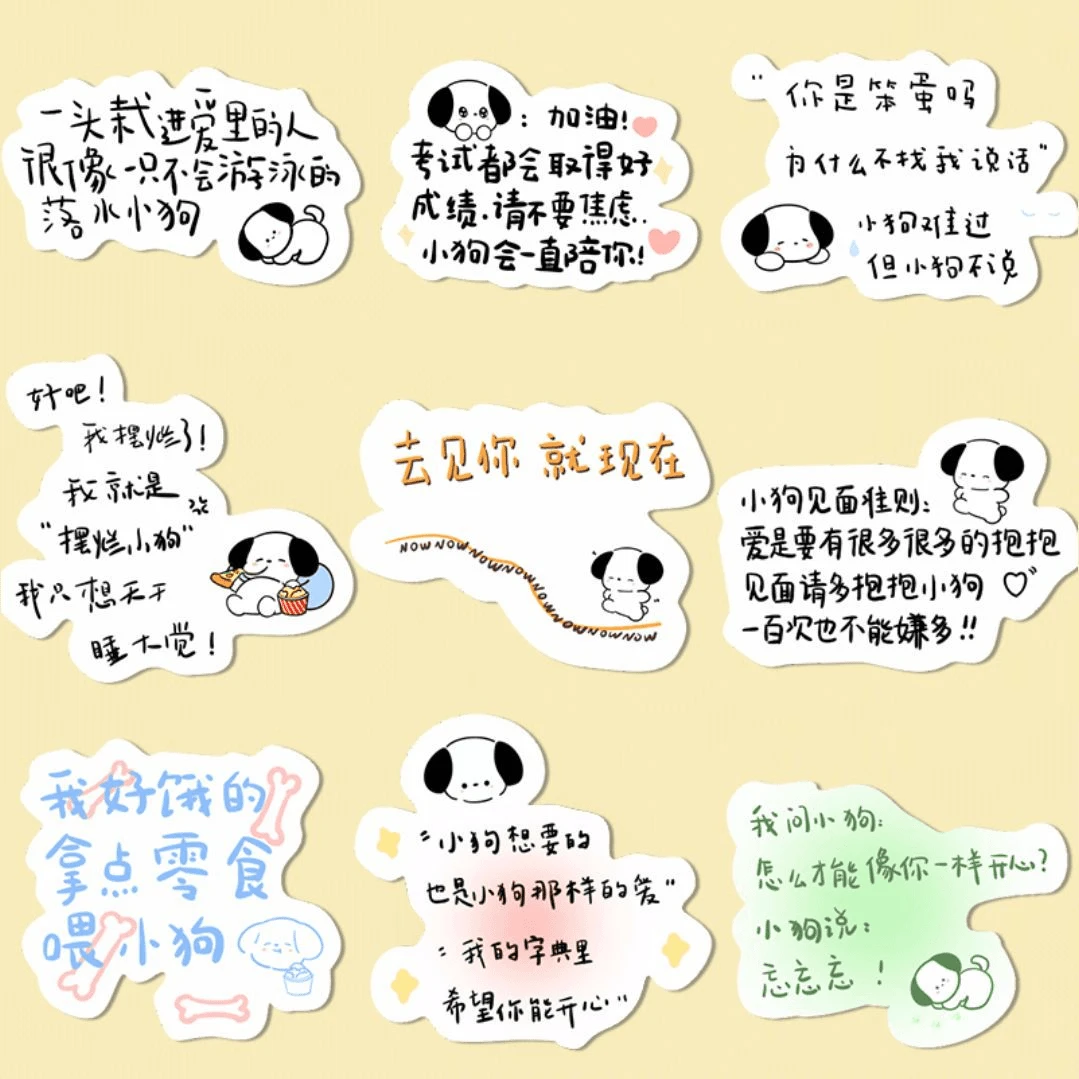 一头栽进爱里的人
很像一只不会游泳的
落水小狗
：加油！
考试都会取得好
成绩.请不要焦虑..
小狗会一直陪你!
"你是笨蛋吗
为什么不找我说话"
小狗难过
但小狗不说
好吧！
我摆烂了！
我就是
"摆烂小狗"
我只想天天
睡大觉！
去见你 就现在
NOW NOW NOW NOW NOW NOW NOW NOW NOW
小狗见面准则：
爱是要有很多很多的抱抱
见面请多抱抱小狗♡
一百次也不能嫌多!!
我好饿的
拿点零食
喂小狗
"小狗想要的
也是小狗那样的爱"
"我的字典里
希望你能开心"
我问小狗：
怎么才能像你一样开心?
小狗说：
忘忘忘！